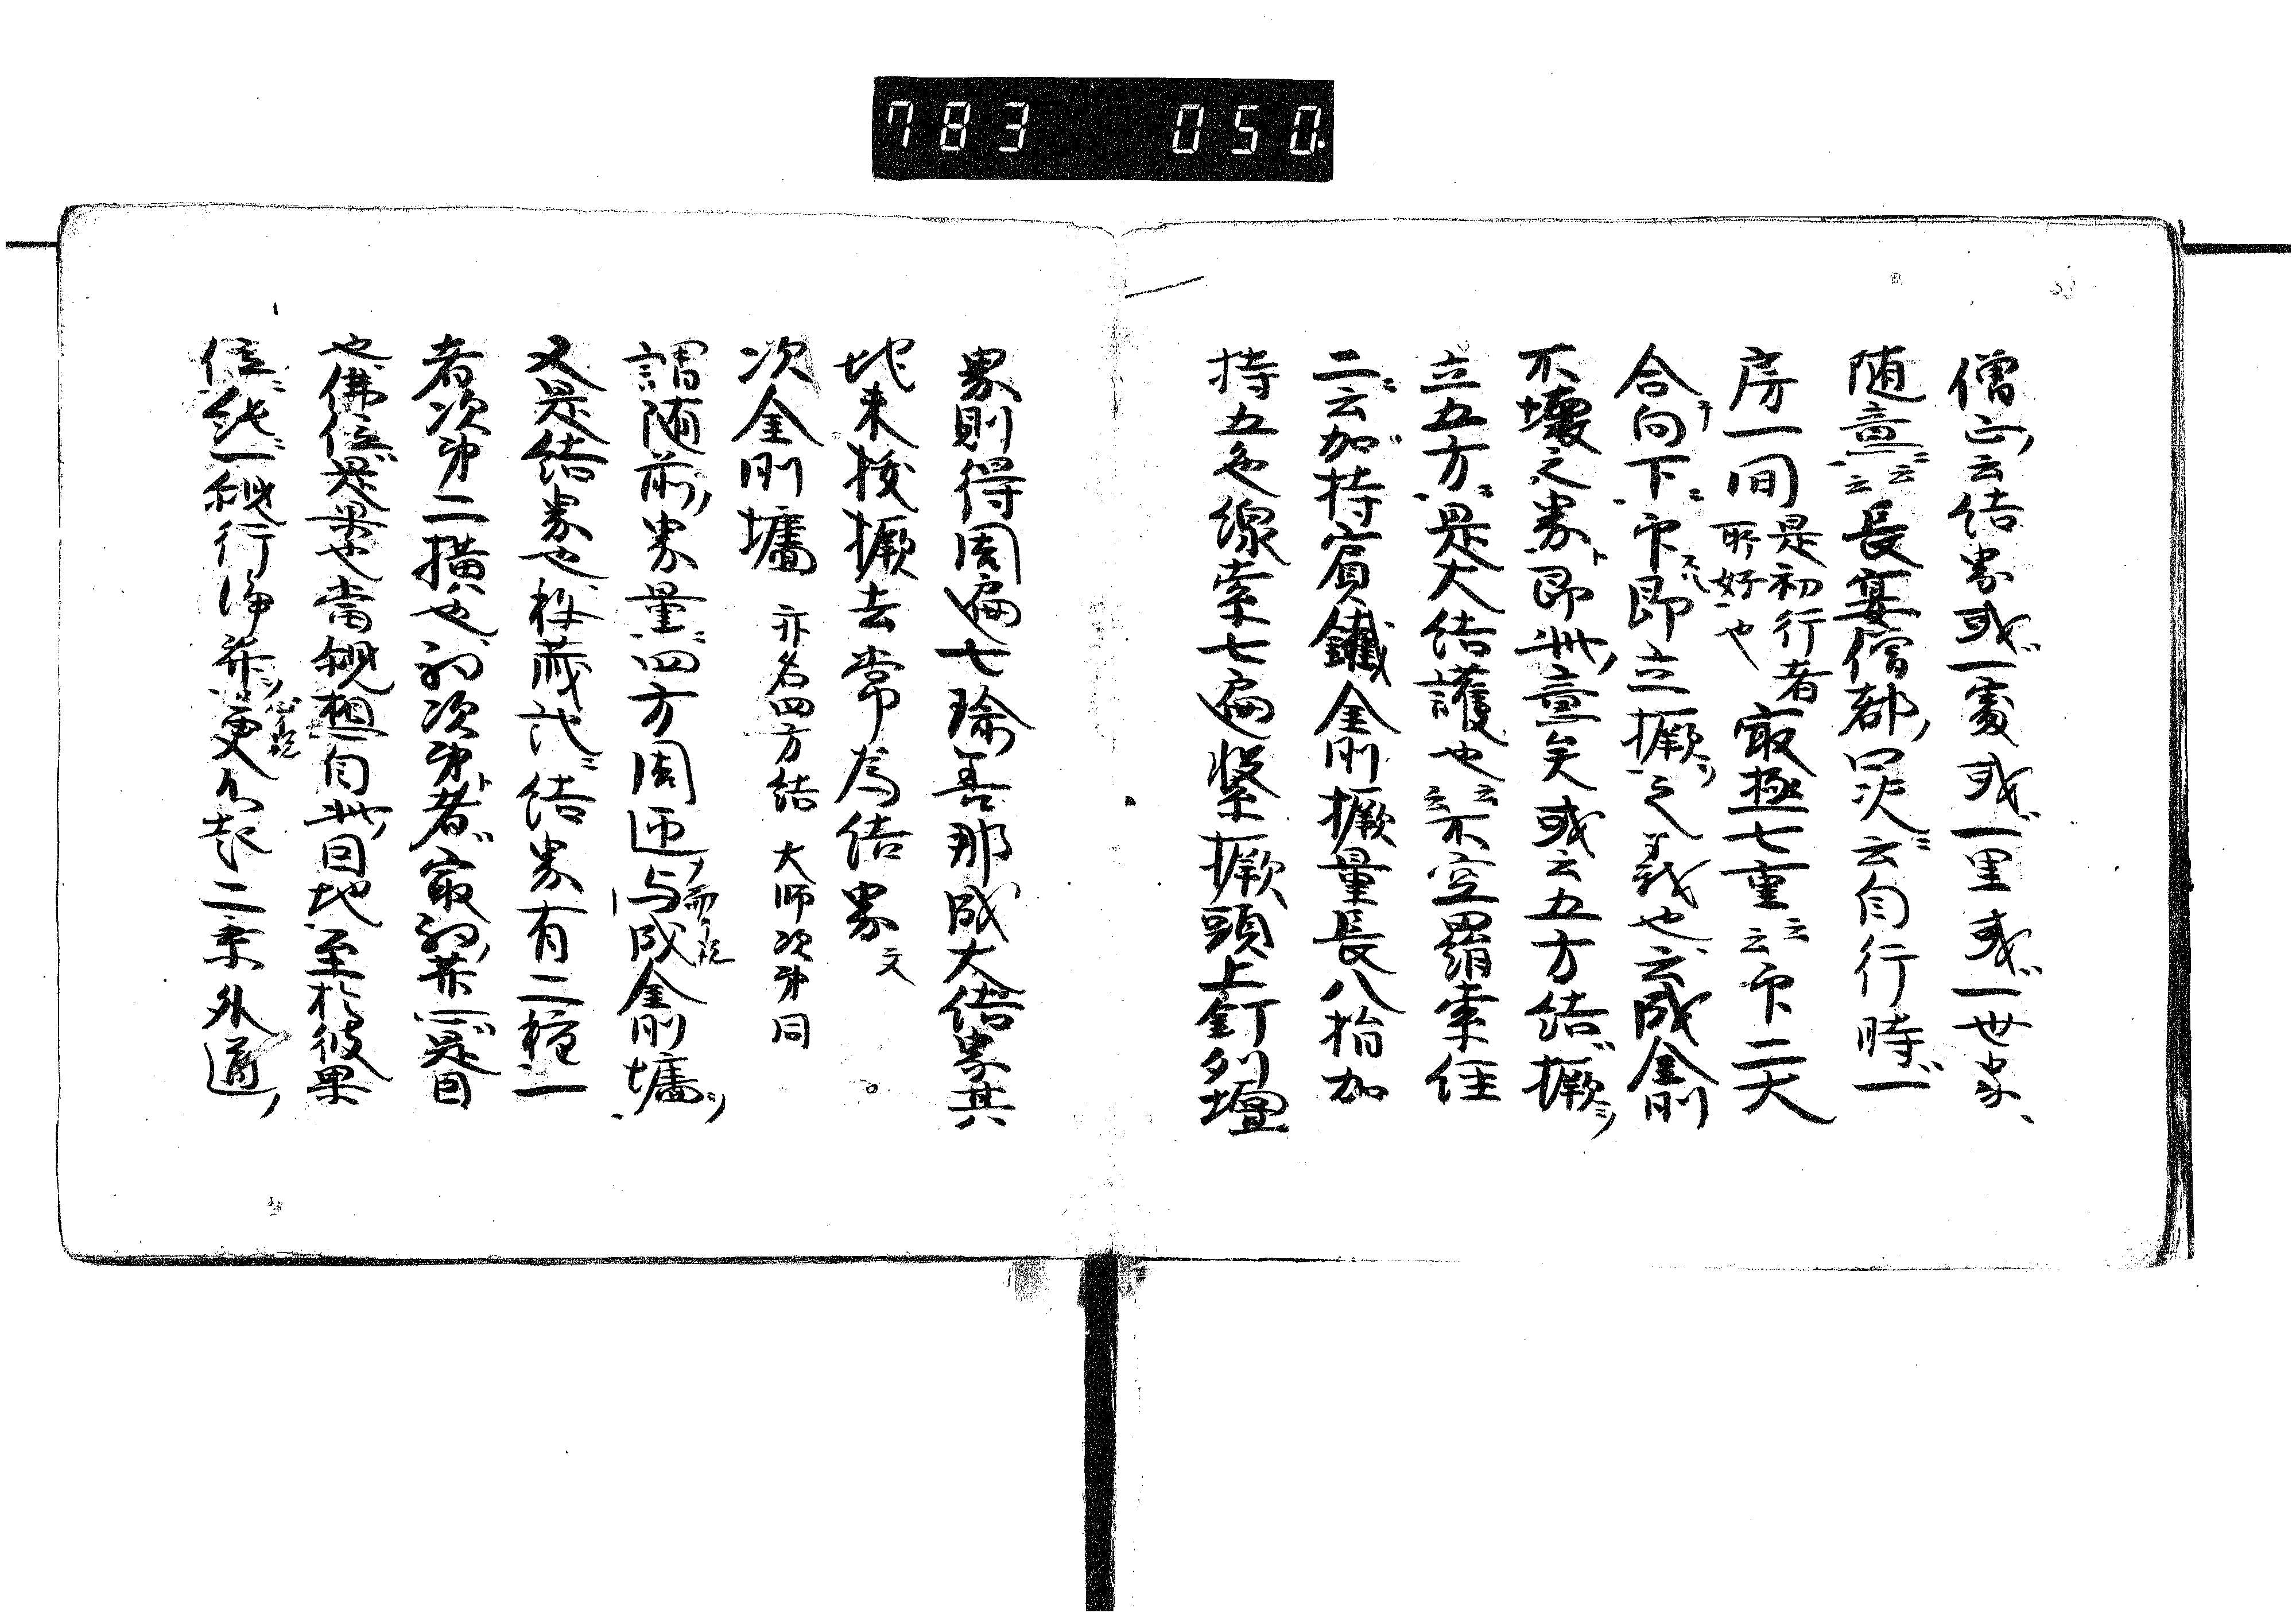 783 050
僧正云結界或一處或一里或一世界
随意云云長宴僧都口决云自行時一
房一间是初行者
所好也 寂極七重云云印二大
合向下印即立撅之義也云成金剛
不壊之界即此意矣或云五方結撅
立五方是大結護也云云不空羂索
二云加持賓鐵金剛撅量長八指加
持五色線索七遍繫撅頭上釘列壇
界則得周遍七瑜善那成大結界其
地来按撅去常為結界文
次金剛墻 亦名四方結 大師次第同
謂随前界量四方周迊成金剛墻
又是結界也 結界有二種一
者次第二撗也初次第者寂初是因
也佛位是果也當観想自此因地至於彼果
位純一秘行浄更不起二乗外道